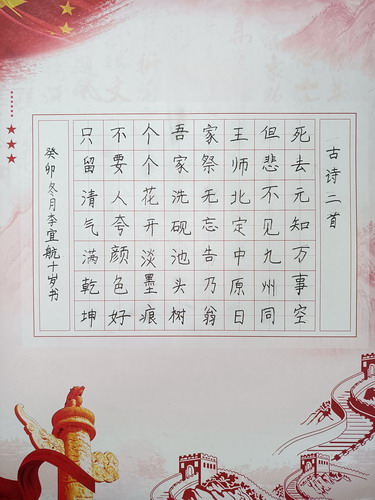 古诗二首
死去元知万事空
但悲不见九州同
王师北定中原日
家祭无忘告乃翁
吾家洗砚池头树
个个花开淡墨痕
不要人夸颜色好
只留清气满乾坤
癸卯冬月李宜航十岁书